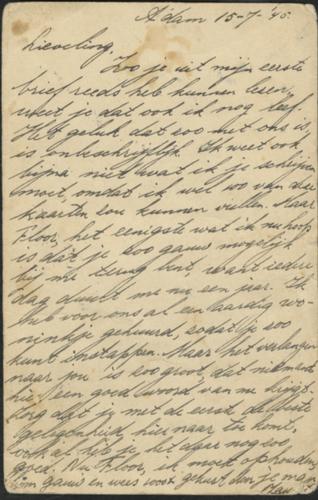 A'dam 15-7-'45.
Lieveling,
Zoo je uit mijn eerste
brief reeds heb kunnen lezen,
weet je dat ook ik nog leef.
Het geluk dat zoo met ons is,
is onbeschrijflijk. Ik weet ook
bijna niet wat ik je schrijven
moet, omdat ik wel 100 van die
kaarten zou kunnen vullen. Maar
Floor, het eenigste wat ik nu hoop
is dat je zoo gauw mogelijk
bij me terug bent, want iedere
dag duurt me nu een jaar. Ik
heb voor ons al een aardig wo-
ninkje gehuurd, zodat je zoo
kunt instappen. Maar het verlangen
naar jou is zoo groot, dat niemand
hier een goed woord van me krijgt.
Zorg dat je met de eerste de beste
gelegenheid, hier naar toe komt,
ook al heb je het daar nog zoo
goed. Nu Floor, ik moet ophouden,
kom gauw en wees voor't gekust door je man